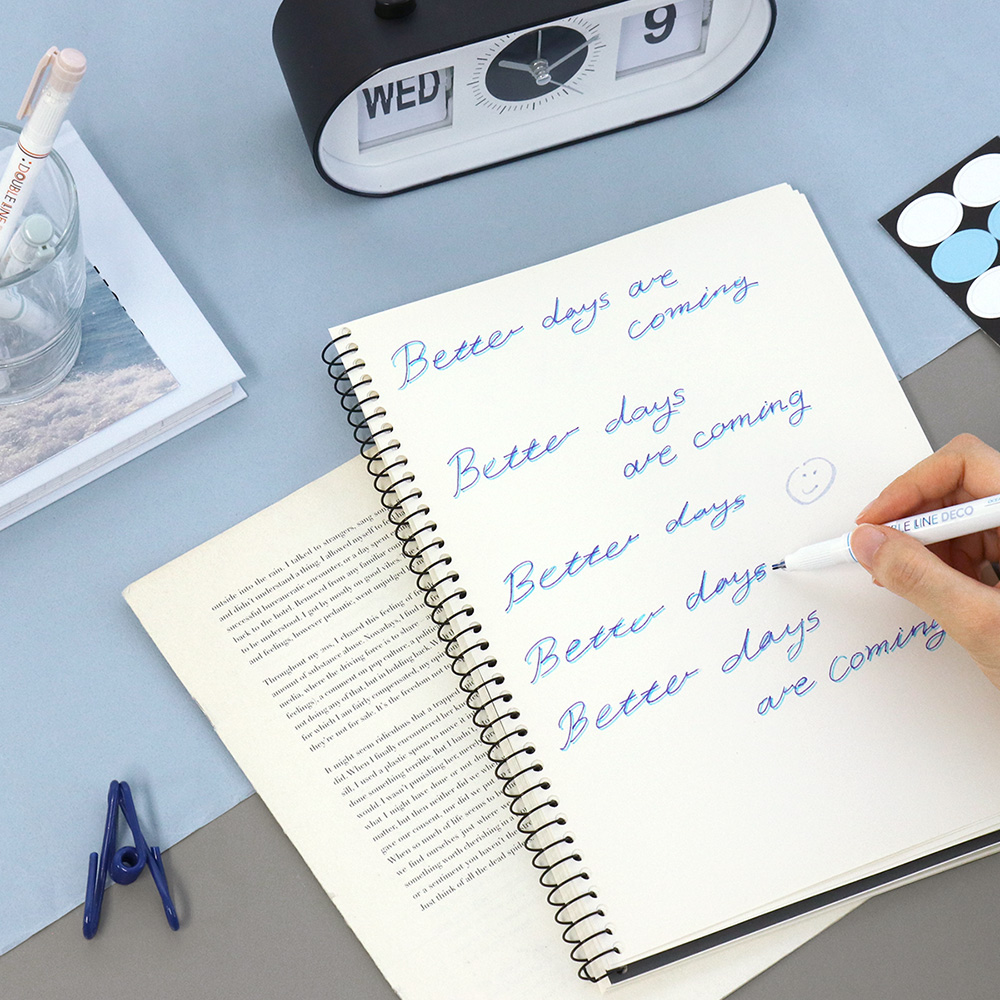 WED
9
DOUBLE LINE
Better days are
coming
Better days
are coming
Better days
Better days
Better days
are coming
LE LINE DECO
outside into the rain. I talked to strangers, sang
and didn't understand a thing. I allowed myself to feel
successful bureaucratic encounter, or a day spent
back to the hotel. Removed from any familiar
to be understood, I got by mostly on good vibes
and feelings, however pedantic, went unjudged
Throughout my 20s, I chased this feeling
amount of substance abuse. Nowadays, I find
media, where the driving force is to share
feelings, a comment on pop culture, a
not doing any of that, but in holding back,
for which I am fairly compensated, my
they're not for sale. It's the freedom not to
It might seem ridiculous that a
did. When I finally encountered her
all, I used a plastic spoon to move it
done something terrible. But I hadn't,
would. I wasn't punishing her, merely
what I might have done or not
matter, but then neither did we
gave our consent, nor did we
When so much of life seems to
we find ourselves just where
something worth cherishing in a
or a sentiment you haven't the
Just think of all the dead